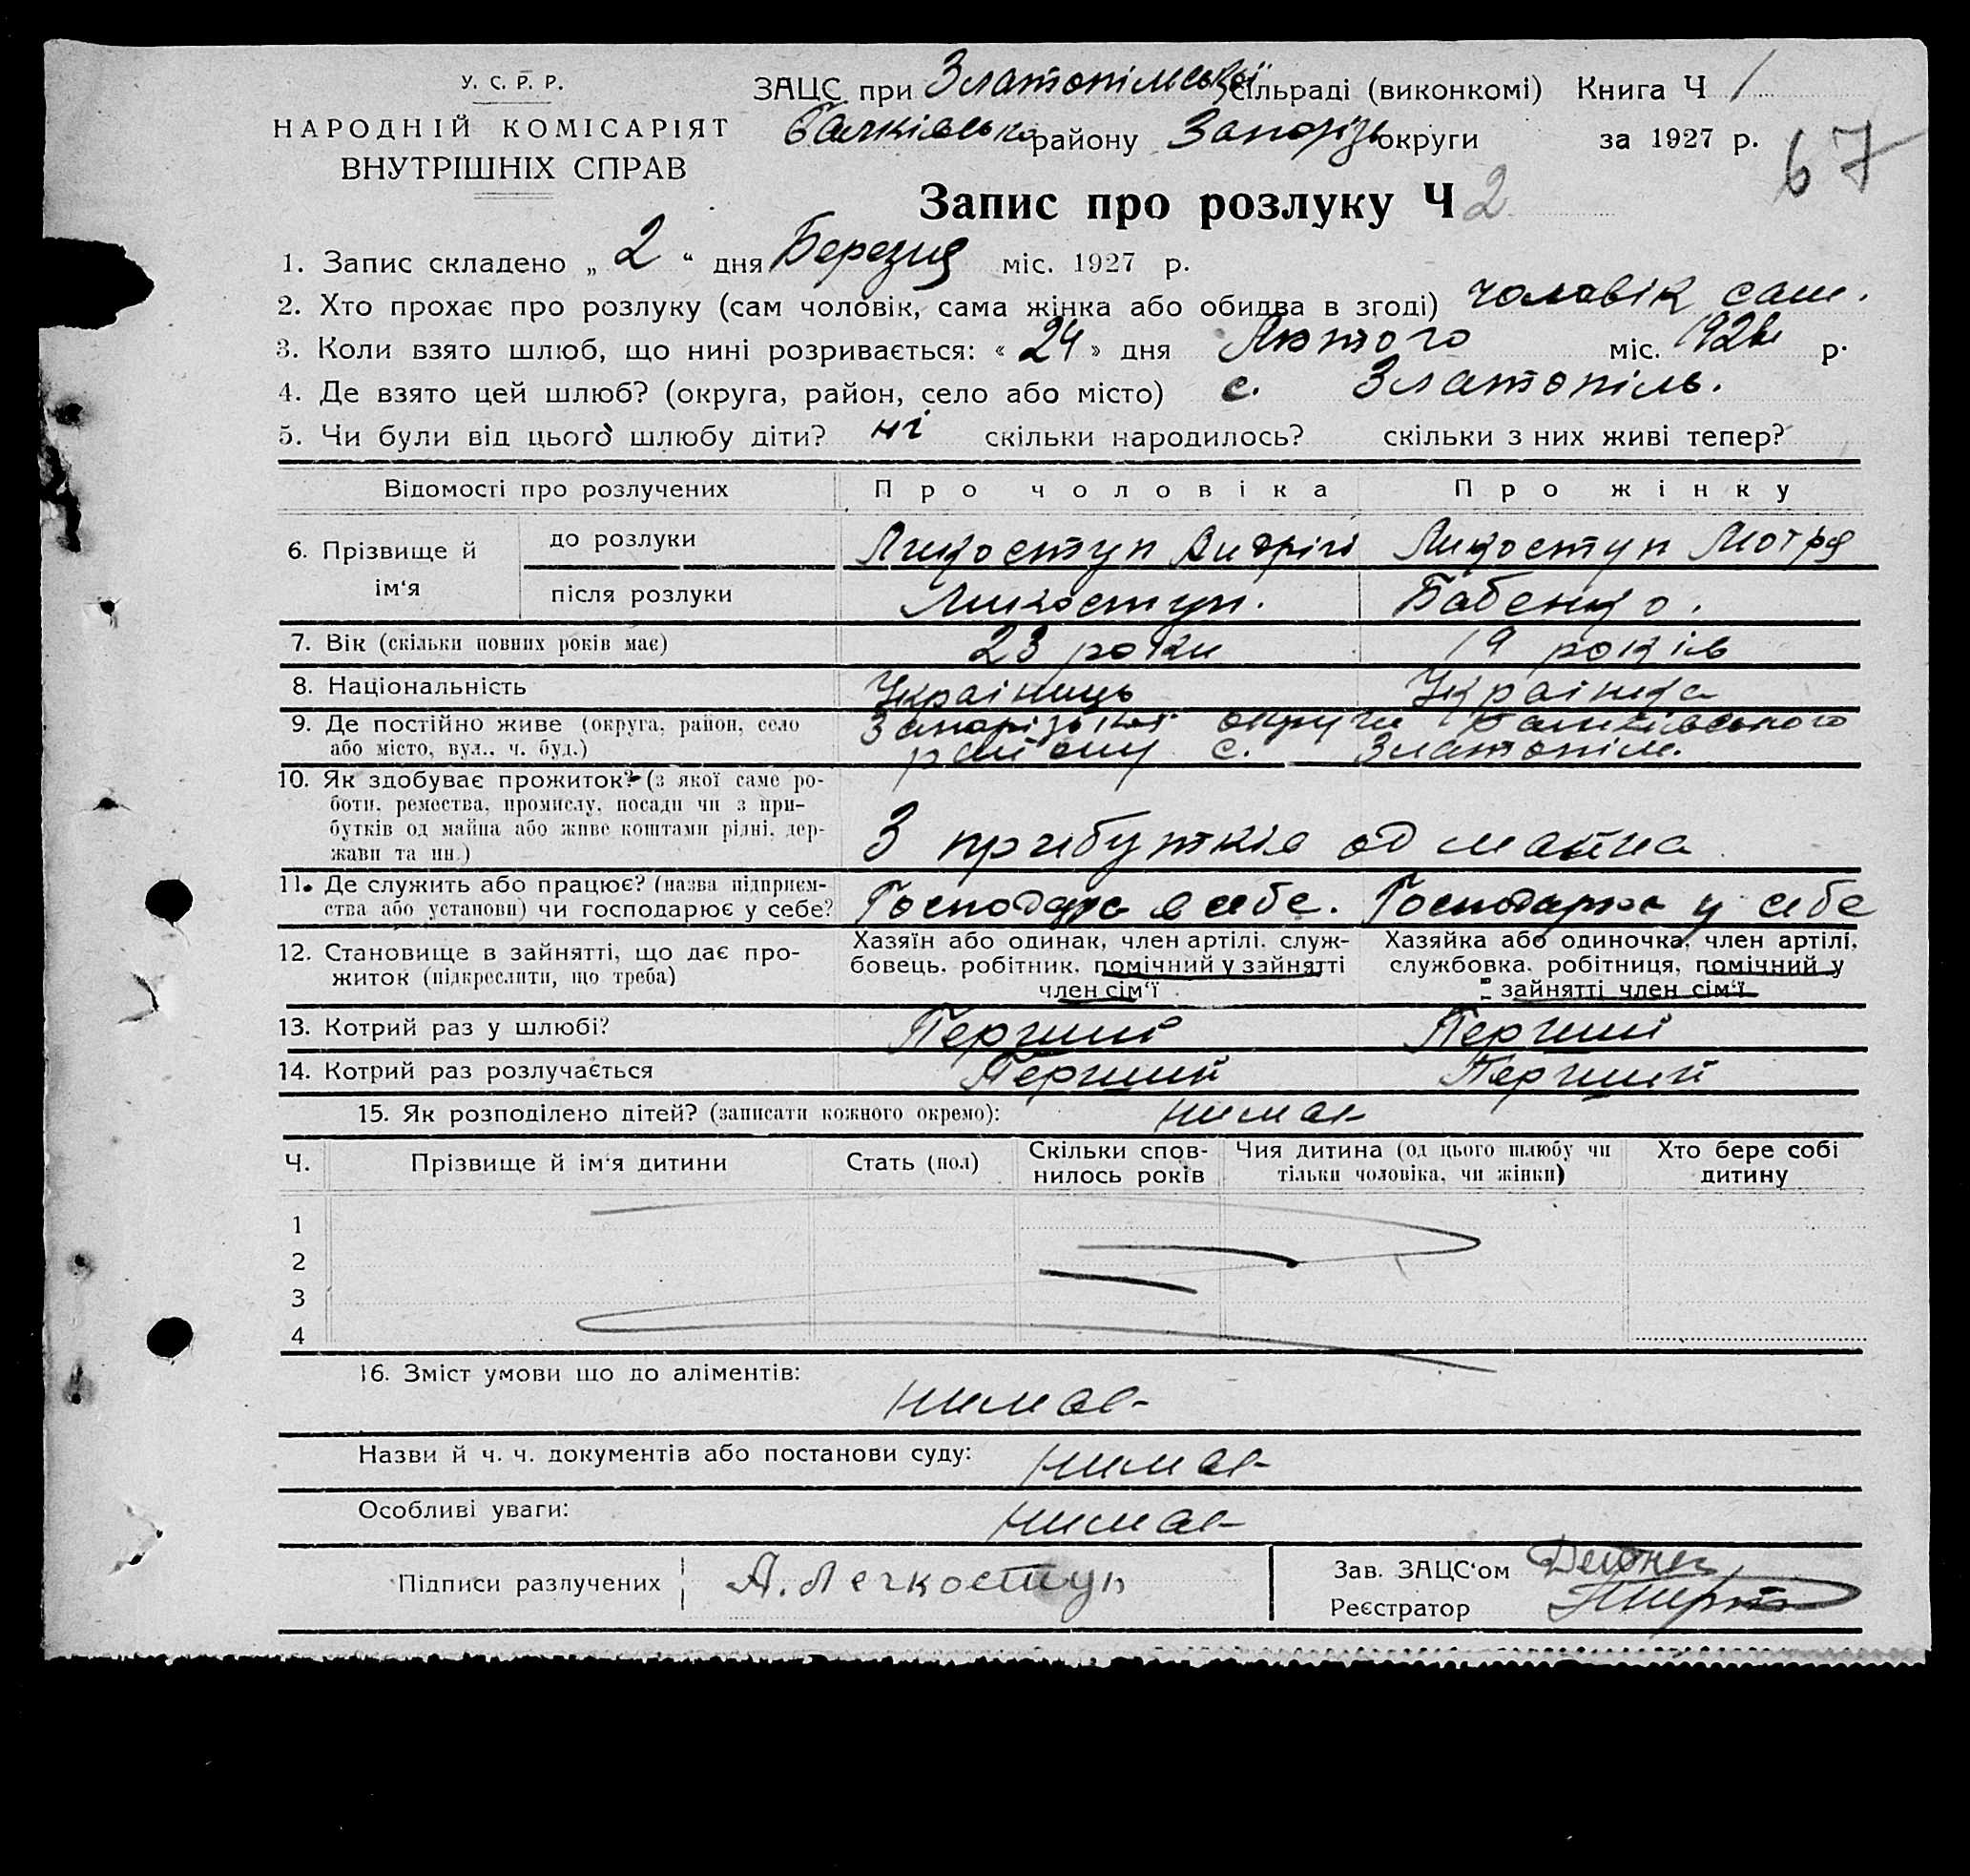 У. С. Р. Р.
НАРОДНІЙ КОМІСАРІЯТ
ВНУТРІШНІХ СПРАВ
ЗАЦС при Златопільської сільраді (виконкомі) Книга Ч 1
району Запорізь округи за 1927 р.
67
Запис про розлуку Ч 2
1. Запис складено „ 2 “ дня Березня міс. 1927 р.
2. Хто прохає про розлуку (сам чоловік, сама жінка або обидва в згоді) чоловік сам.
3. Коли взято шлюб, що нині розривається: « 24 » дня Лютого міс. р.
4. Де взято цей шлюб? (округа, район, село або місто) с. Златопіль.
5. Чи були від цього шлюбу діти? ні скільки народилось? скільки з них живі тепер?
Відомості про розлучених Про чоловіка Про жінку
6. Прізвище й ім‘я
до розлуки Ликоступ Андрій Ликоступ Мотря
після розлуки Ликоступ. Бабенко.
7. Вік (скільки повних років має) 23 роки 19 років
8. Національність Україниць Українка
9. Де постійно живе (округа, район, село Запорізької округи
або місто, вул.. ч. буд.) району с. Златопіль.
10. Як здобуває прожиток? (з якої саме ро-
боти, ремества, промислу, посади чи з при-
бутків од майна або живе коштами рідні, дер-
жави та ин.) З прибутків од майна
11. Де служить або працює? (назва підприєм-
ства або установи) чи господарює у себе? Господарює в себе. Господарює у себе
12. Становище в зайнятті, що дає про-
житок (підкреслити, що треба)
Хазяїн або одинак, член артілі. служ-
бовець, робітник, помічний у зайнятті
член сім‘ї
Хазяйка або одиночка, член артілі,
службовка. робітниця, помічний у
зайнятті член сім‘ї
13. Котрий раз у шлюбі? Перший Перший
14. Котрий раз розлучається Перший Перший
15. Як розподілено дітей? (записати кожного окремо): нимає
Ч. Прізвище й ім‘я дитини Стать (пол) Скільки спов-нилось років Чия дитина (од цього шлюбу чи тільки чоловіка, чи жінки) Хто бере собі дитину
1
2
3
4
16. Зміст умови що до аліментів:
нимає
Назви й ч. ч. документів або постанови суду: нимає
Особливі уваги: нимає
Підписи разлучених А. Легкоступ
Зав. ЗАЦС‘ом
Реєстратор